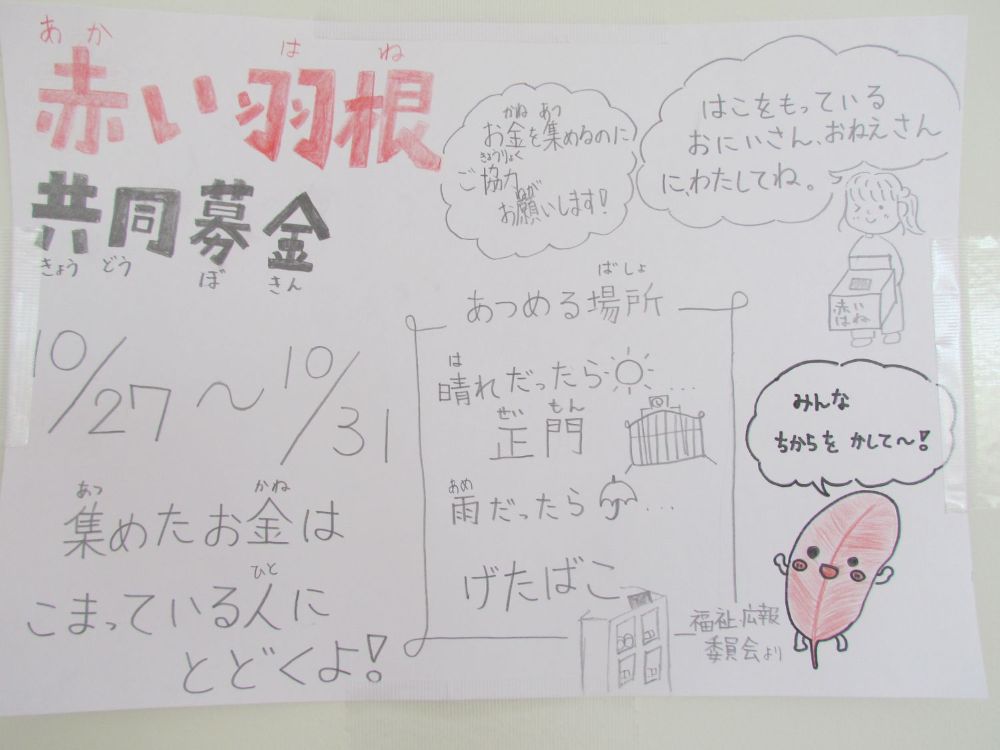 あか はね
赤い羽根
共同募金
きょう どう ぼ きん
10/27〜10/31
あつ かね
集めたお金は
ひと
こまっている人に
とどくよ!
かね あつ
お金を集めるのに
きょうりょく
ご協力
ねが
お願いします!
はこをもっている
おにいさん、おねえさん
に、わたしてね。
赤い
はね
ばしょ
あつめる場所
は
晴れだったら…
せい もん
正門
あめ
雨だったら…
げたばこ
みんな
ちからを かして〜!
福祉・広報
委員会より